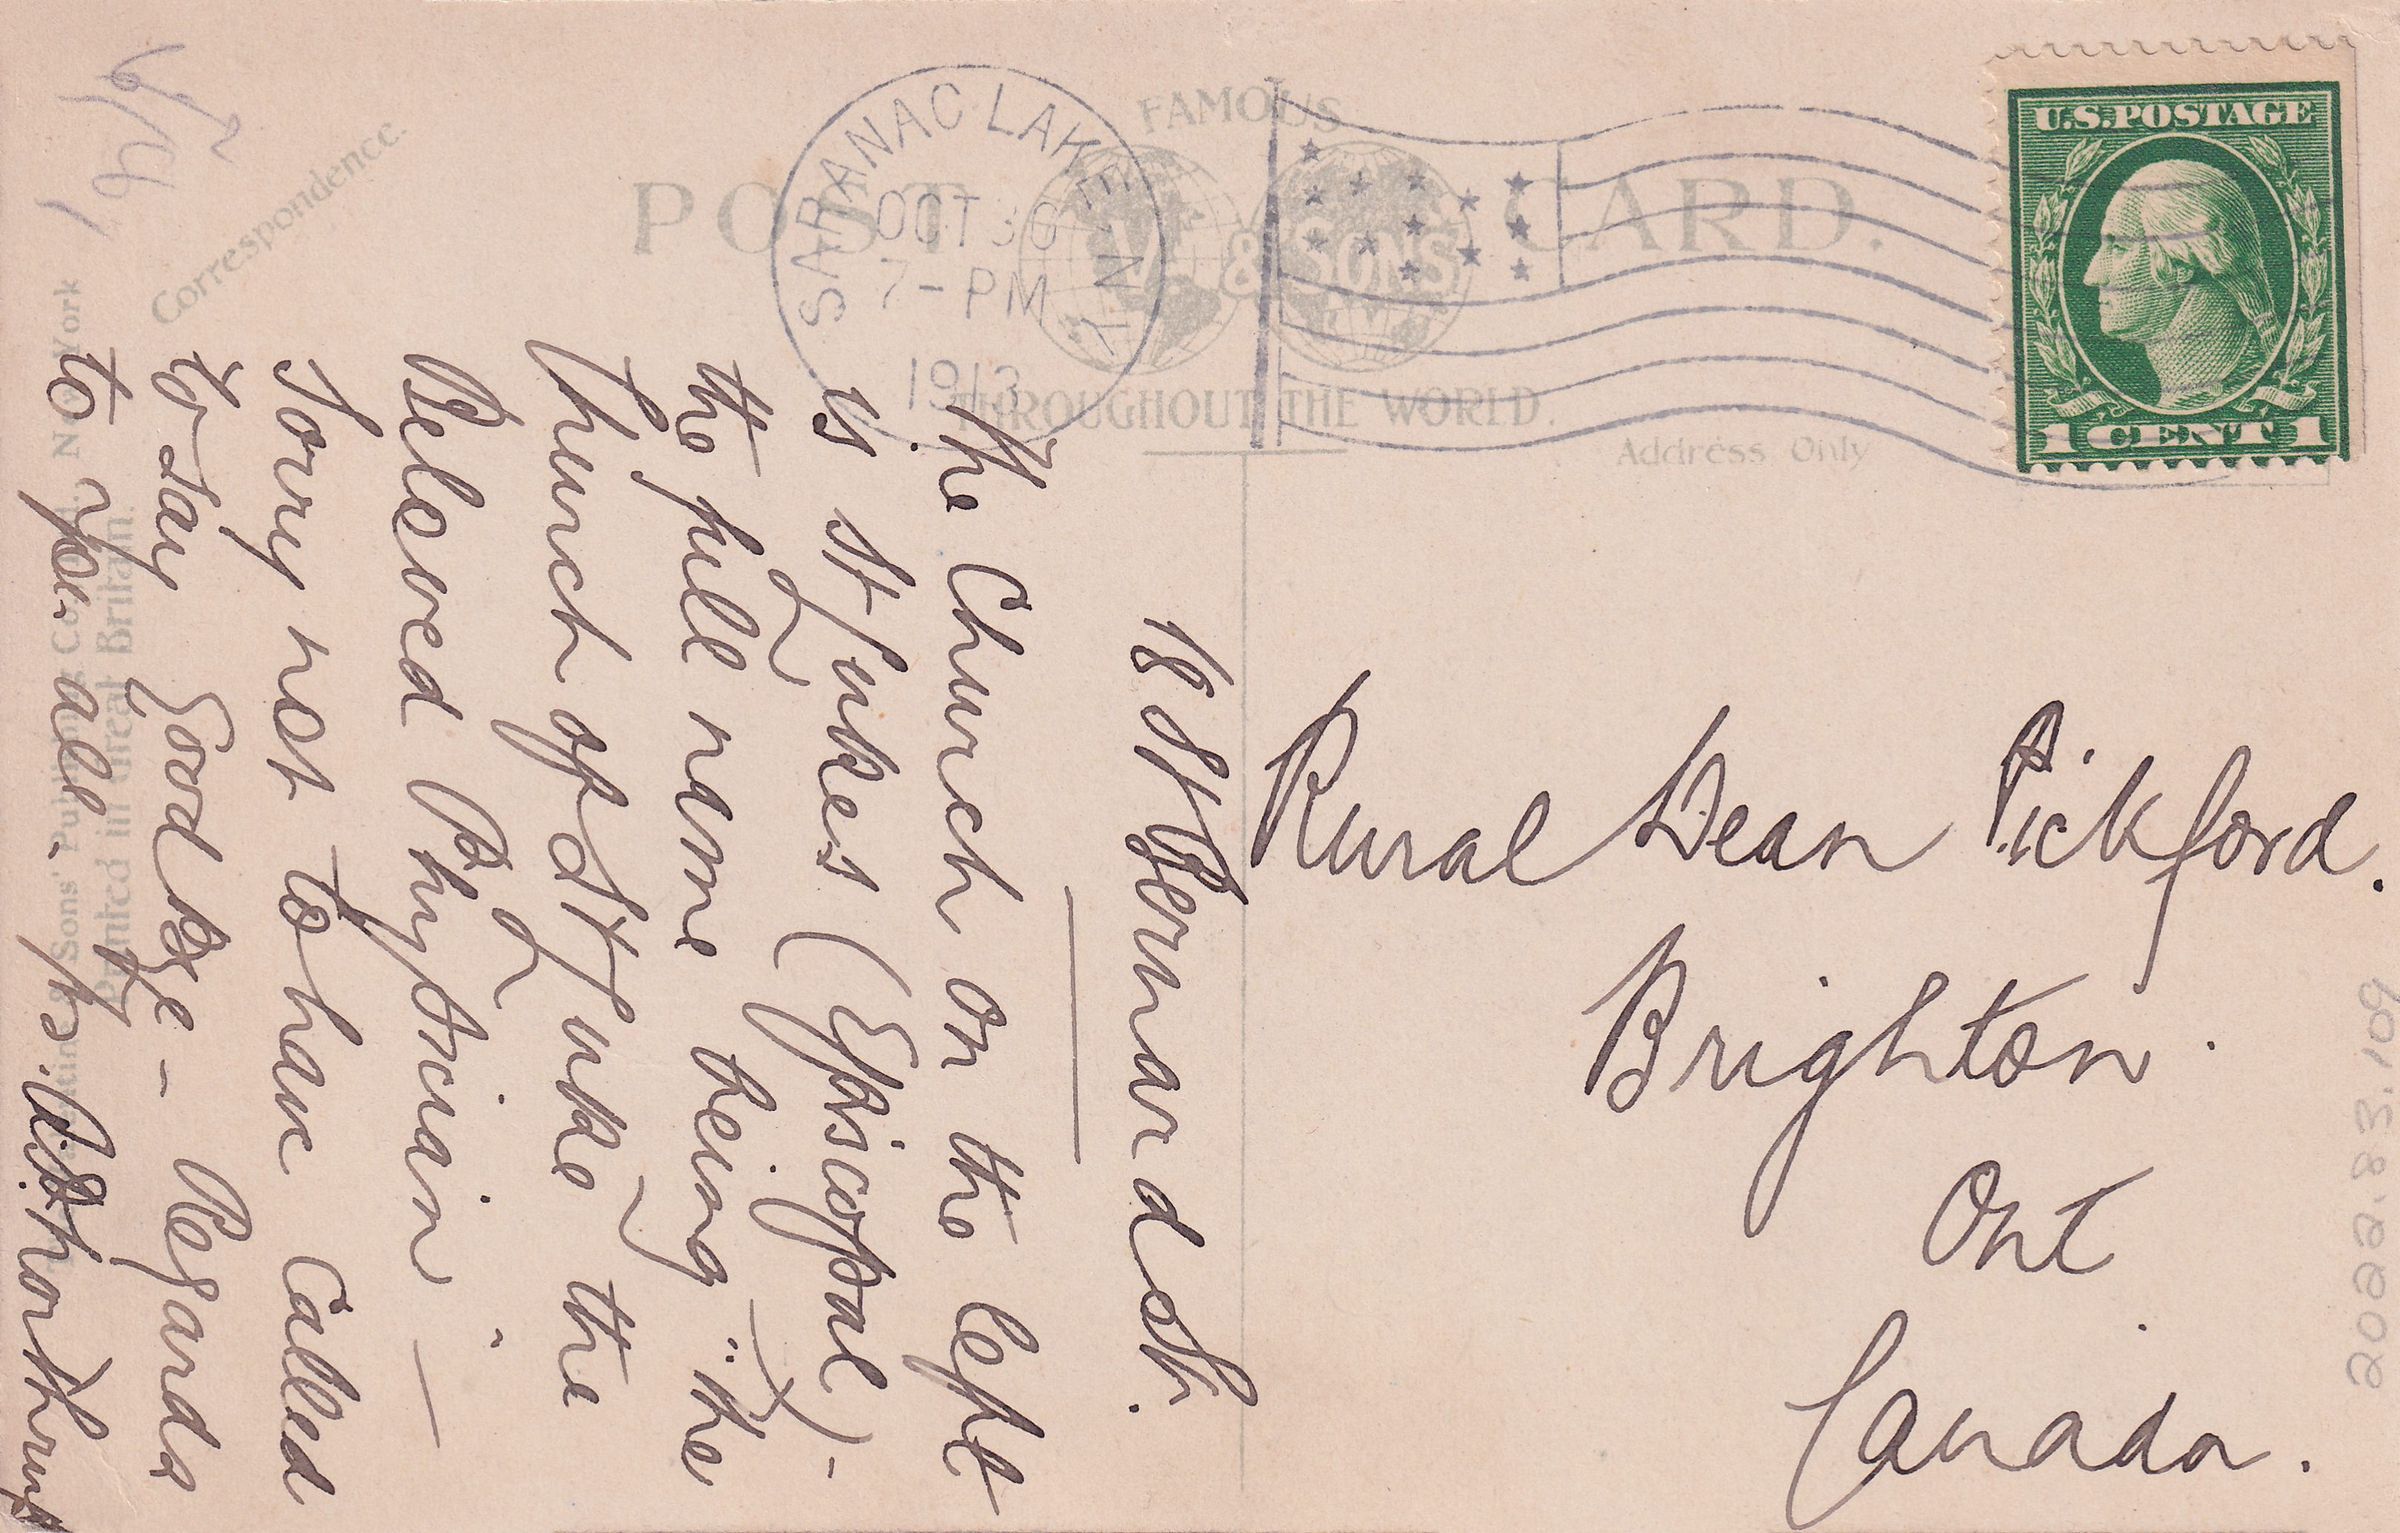 Correspondence.
POST CARD.
FAMOUS
& SONS
THROUGHOUT THE WORLD.
Address Only
SARANAC LAKE N.Y.
OCT 30
7-PM
1913
U.S.POSTAGE
1 CENT 1
18 St Bernard St.
The Church on the left
is St Lukes (Episcopal)-
the full name being "The
Church of St Luke the
Beloved Physician" —
Sorry not to have called
to day Good Bye - Regards
to you all.
Rural Dean Pickford.
Brighton.
Ont.
Canada.
& Sons' Publishing Co. New York
Printed in Great Britain.
2022.83.109